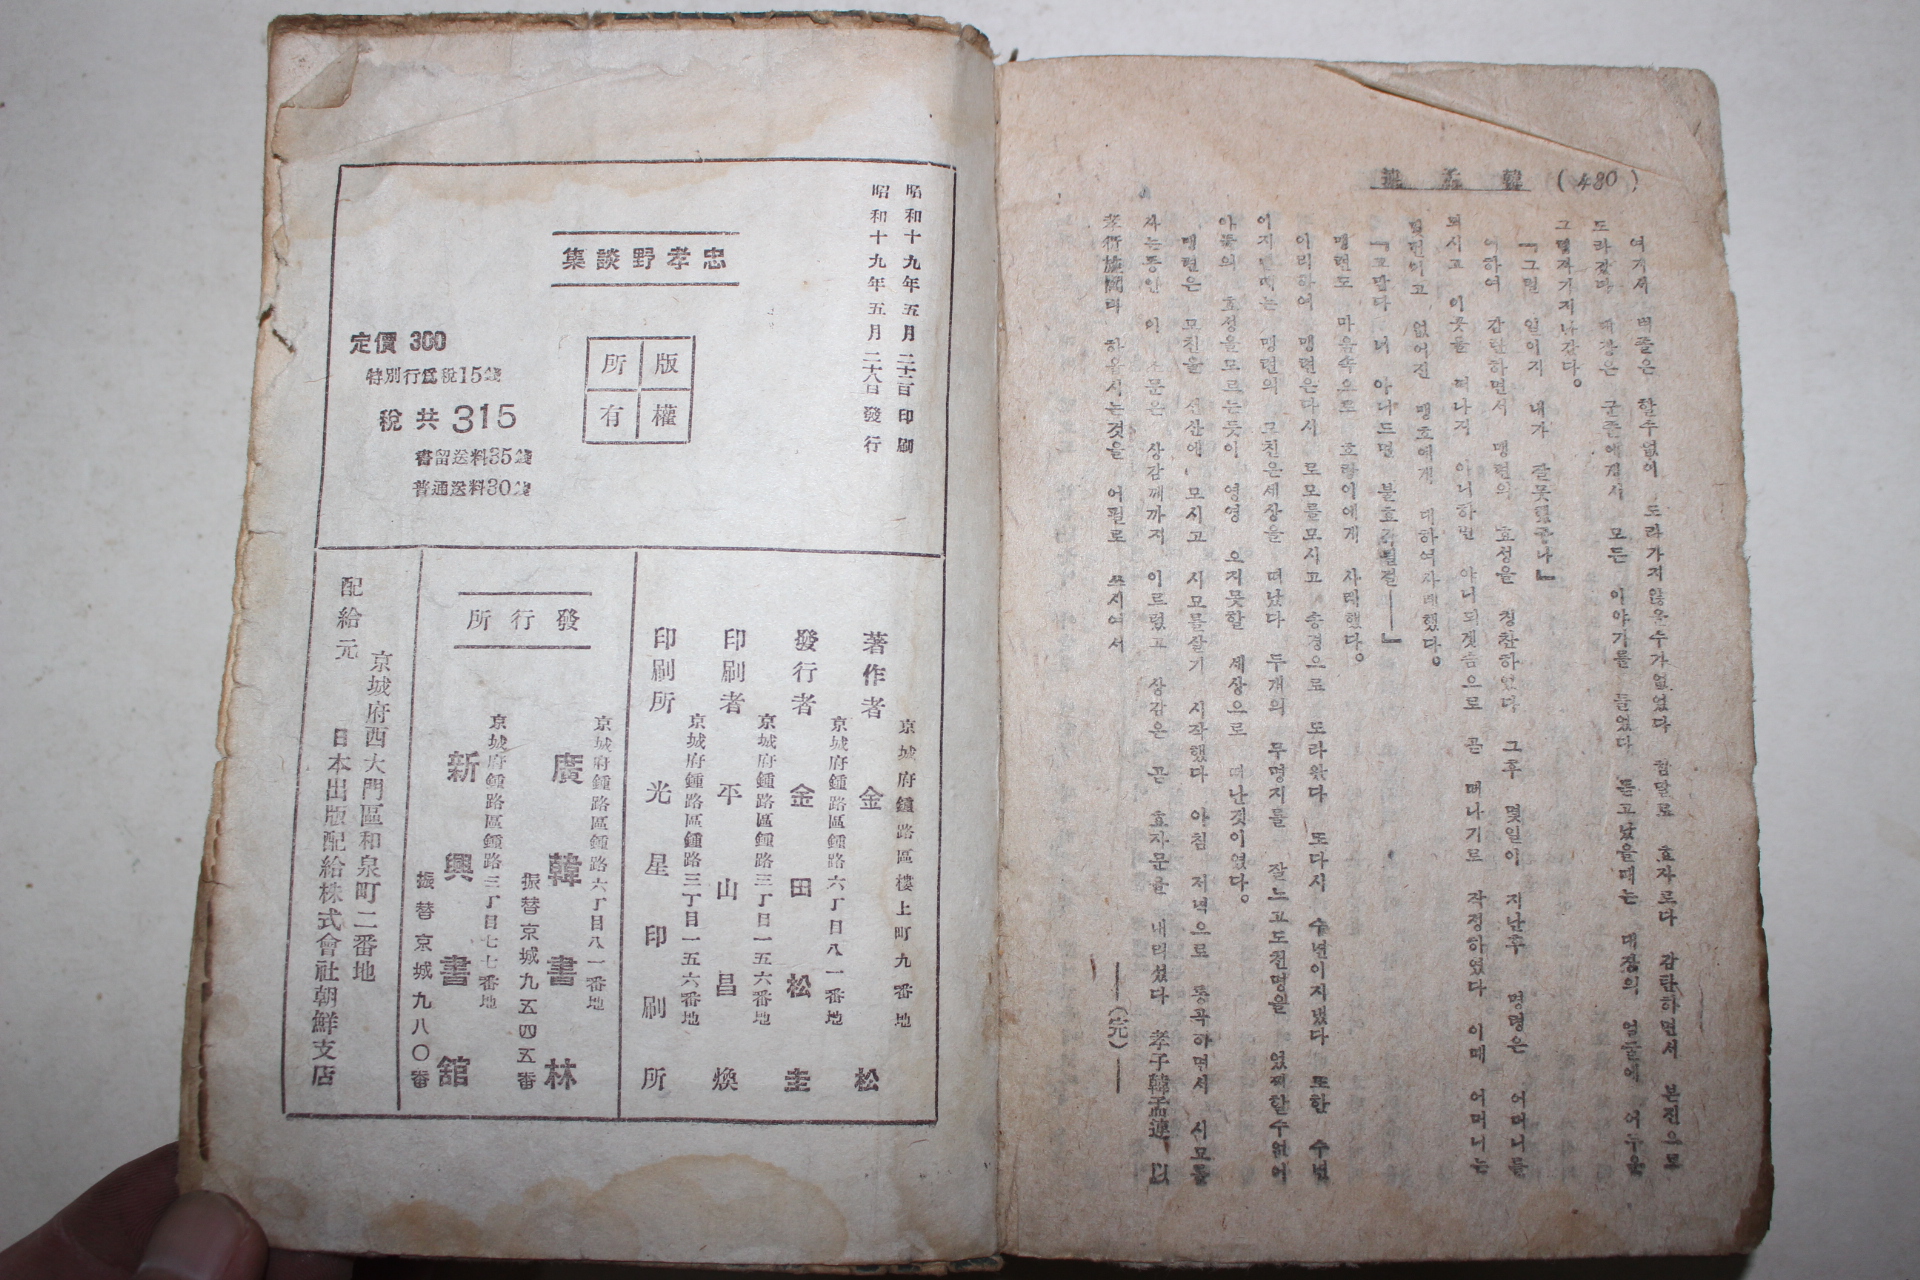 (480) 韓孟連
여기서 벼줄은 할수없이 도라가지않을수가없었다 참말로 효자로다 감탄하면서 본진으로
도라갔다 대장은 군졸에게서 모든 이야기를 들었다 듣고났을때는 대장의 얼굴에 어두운
『그런 일이지 내가 잘못했구나』
여하여 감탄하면서 맹련의 효성을 칭찬하였다 그후 몇일이 지난후 명령은 어머니를
뫼시고 이곳을 떠나지 아니하면 아니되겟슴으로 곧 떠나기로 작정하였다 이때 어머니는
『고맙다 너 아니드면 불효
맹련도 마음속으로 호랑이에게 사례했다。
이리하여 맹련은다시 모모를모시고 송경으로 도라왔다 또다시 수년이지냈다 또한 수년
이지난때는 맹련의 모친은세상을 떠났다 두개의 무명지를 잘느고도천명을 었찌할수없어
아들의 효성을모르는듯이 영영 오지못할 세상으로 떠난것이였다。
맹련은 모친을 선산에 모시고 시묘를살기 시작했다 아침 저녁으로 통곡하면서 시묘를
사는동안 이 소문은 상감께까지 이르렀고 상감은 곧 효자문을 내리셨다 孝子韓孟連 以
하옵시는것을 어필로 쓰시여서
――(完)――
昭和十九年五月二十三日 印刷
昭和十九年五月二十八日 發行
忠孝野談集
版權所有
定價 300
特別行爲稅15錢
稅共 315
書留送料35錢
普通送料30錢
京城府鍾路區樓上町九番地
著作者 金松
京城府鍾路區鍾路六丁目八一番地
發行者 金田松圭
京城府鍾路區鍾路三丁目一五六番地
印刷者 平山昌煥
京城府鍾路區鍾路三丁目一五六番地
印刷所 光星印刷所
發行所
京城府鍾路區鍾路六丁目八一番地
廣韓書林
振替京城九五四五番
京城府鍾路區鍾路三丁目七七番地
新興書舘
振替京城九八〇番
京城府西大門區和泉町二番地
配給元 日本出版配給株式會社朝鮮支店